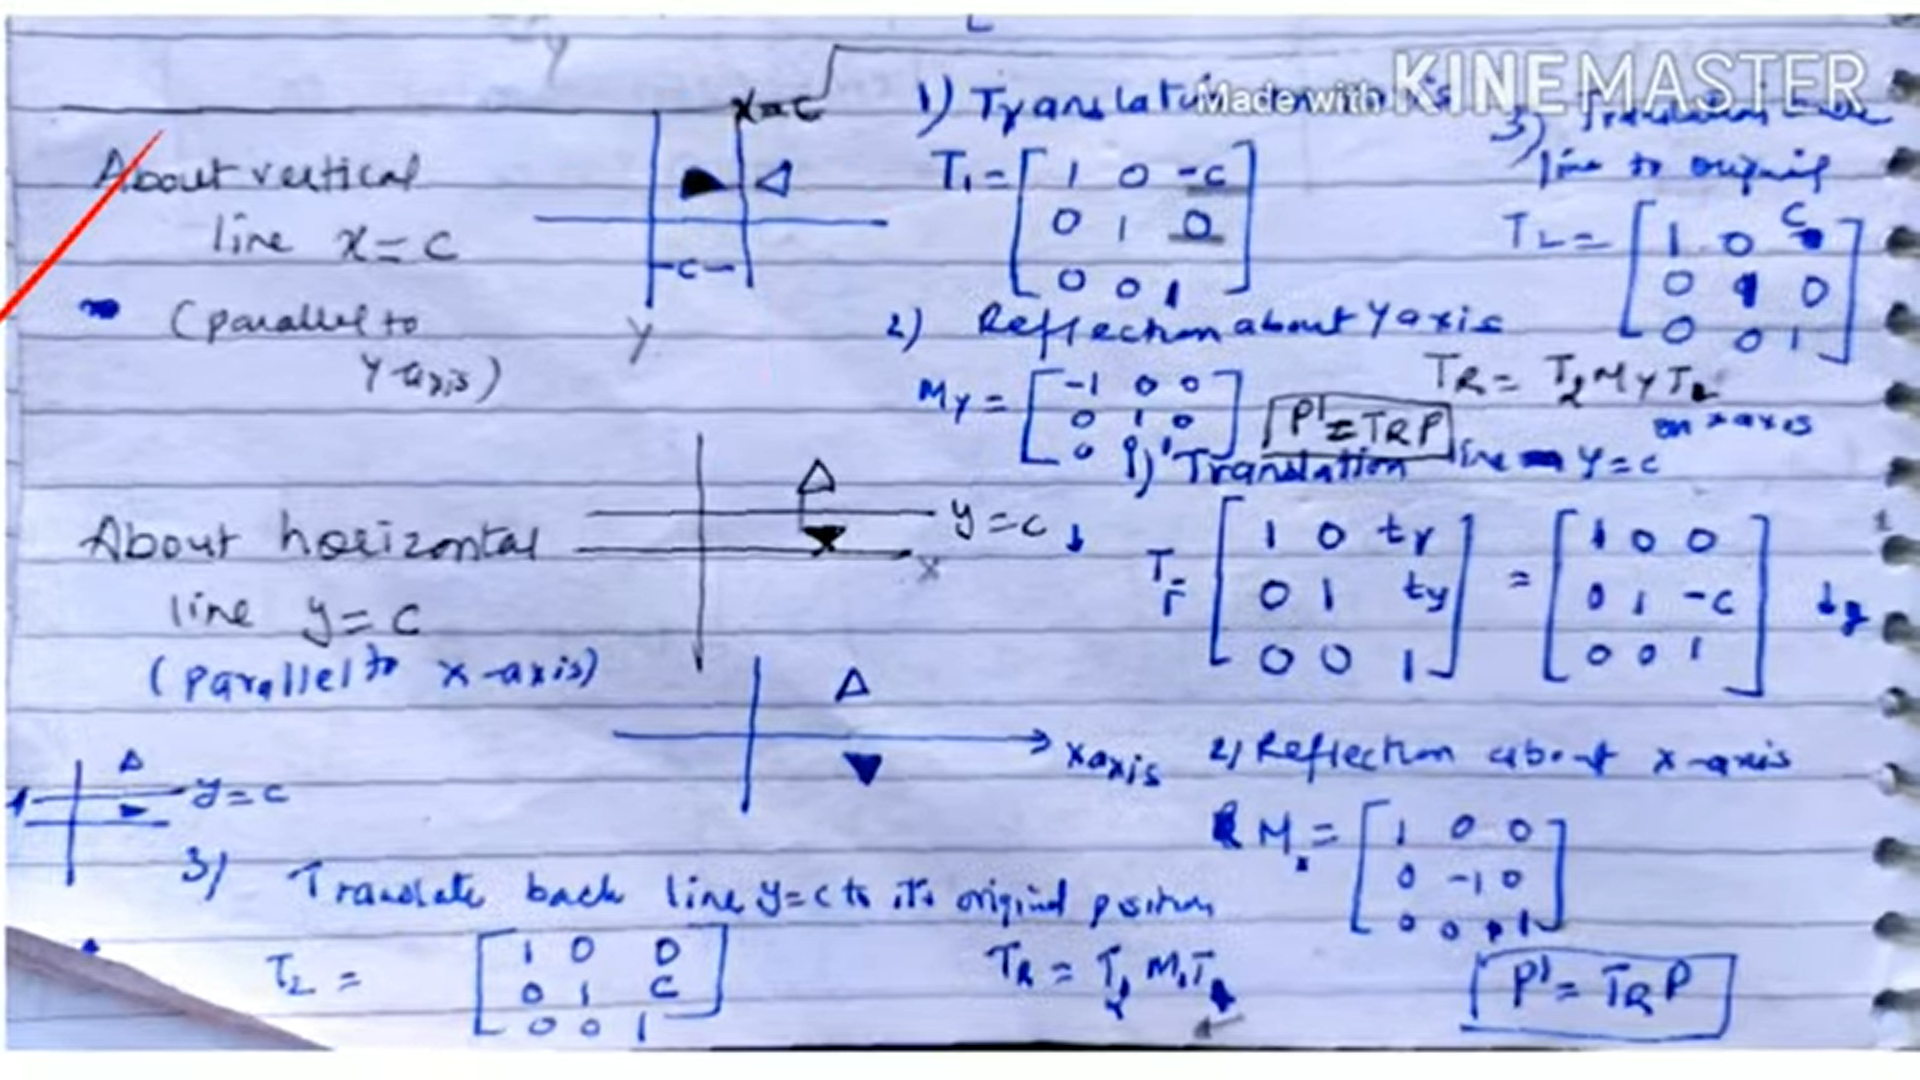 About vertical
line x = c
(parallel to
Y-axis)
x = c
-c-
Y
1) Translation
Made with KINEMASTER
T₁ = [ 1 0 -c
0 1 0
0 0 1 ]
2) Reflection about Y axis
My = [ -1 0 0
0 1 0
0
P' = TRP
3) Translation
line to
T2 = [ 1 0 c
0 1 0
0 0 1 ]
TR = T2 My T
on x axis
About horizontal
line y = c
(parallel to x-axis)
y = c
x
1) Translation line y = c
T = [ 1 0 ty
0 1 ty
0 0 1 ]
= [ 1 0 0
0 1 -c
0 0 1 ]
x axis
2) Reflection about x-axis
M = [ 1 0 0
0 -1 0
0 0 1 ]
y = c
3) Translate back line y = c to its original position
T2 = [ 1 0 0
0 1 c
0 0 1 ]
TR = T2 M T
P' = TRP